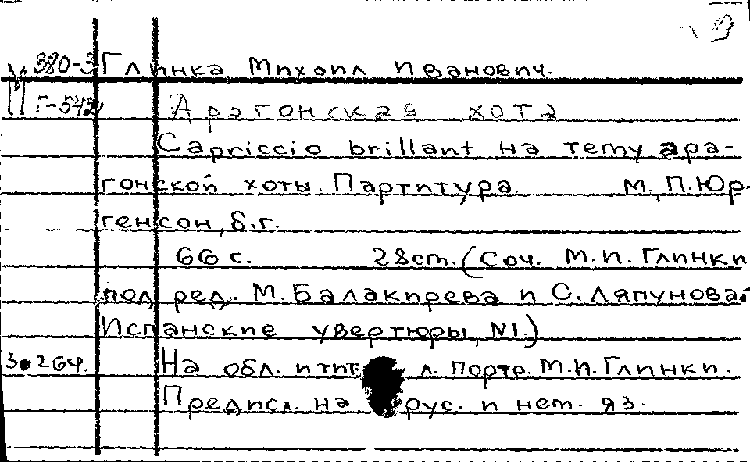 380-3 Глинка Михаил Иванович.
Г-542 Арагонская хота
Capriccio brillant на тему ара-
гонской хоты. Партитура. М., П. Юр-
генсон, б.г.
66 с. 28 ст. (Соч. М.И. Глинки
под ред. М. Балакирева и С. Ляпунова.
Испанские увертюры, №1.)
На обл. и тит. л. портр. М.И. Глинки.
Предисл. на рус. и нем. яз.